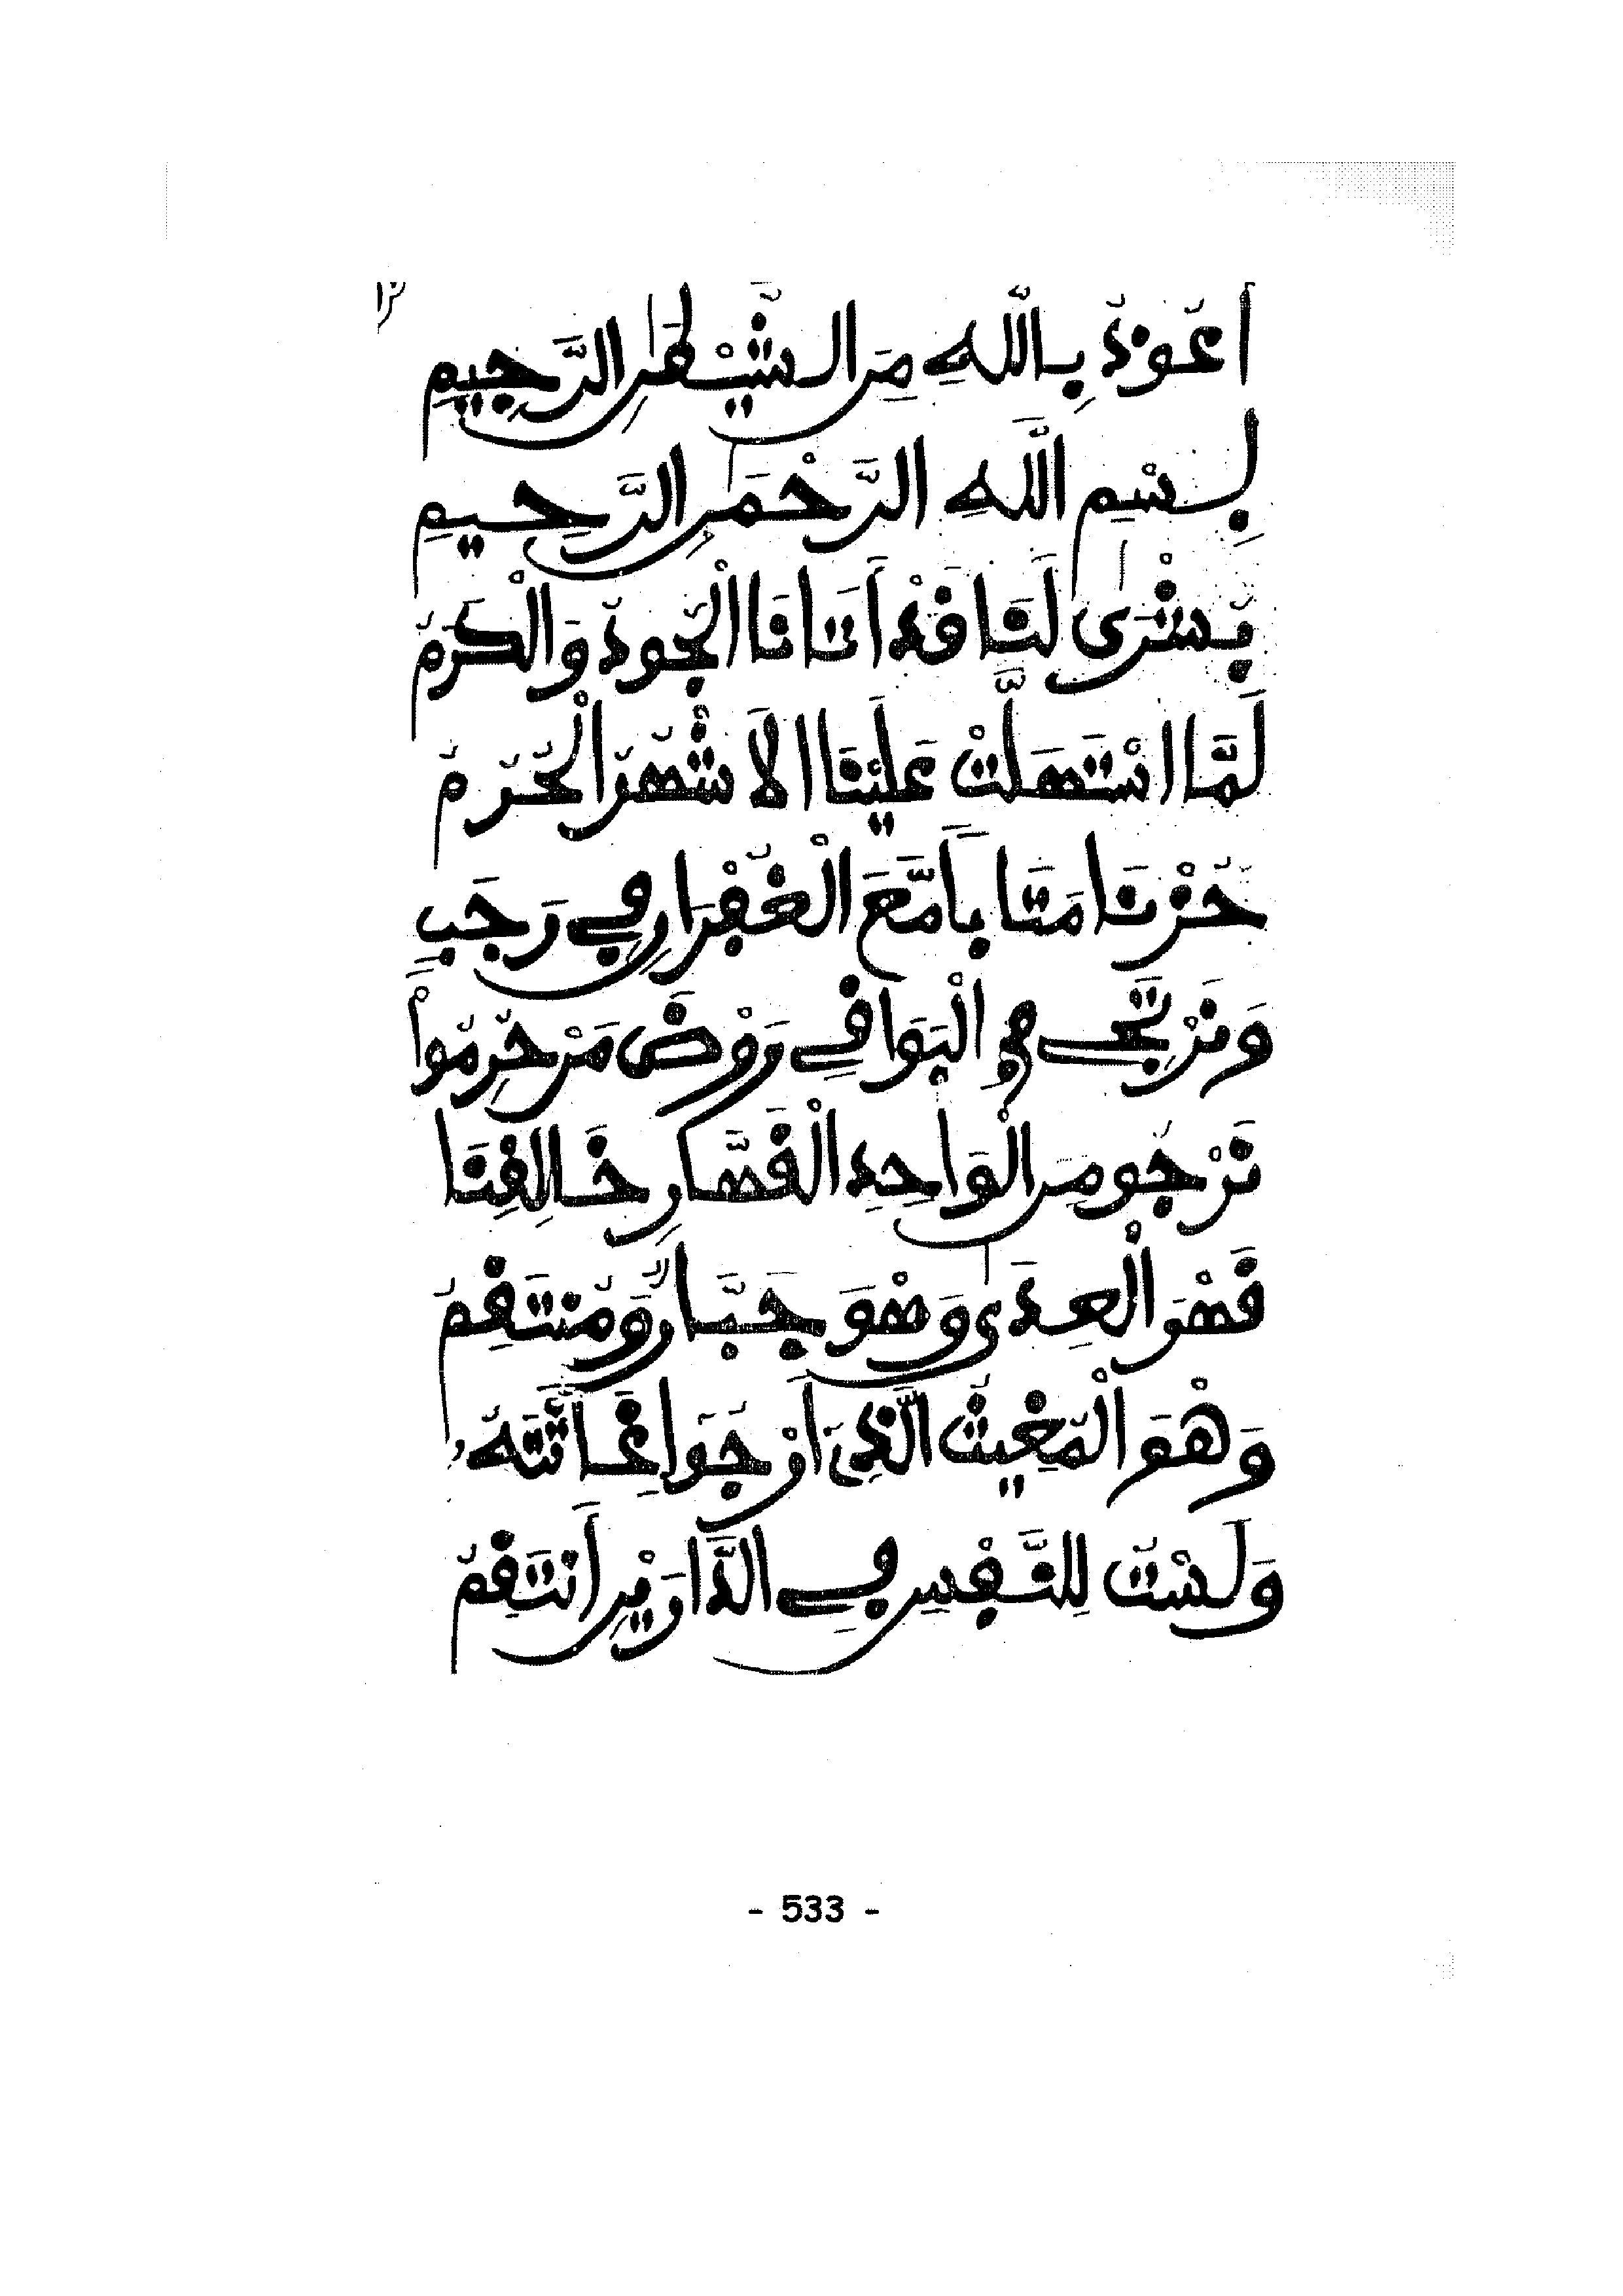 أَعُوذُ بِاللَّهِ مِنَ الشَّيْطَٰنِ الرَّجِيمِ
بِسْمِ اللَّهِ الرَّحْمَٰنِ الرَّحِيمِ
بُشْرَىٰ لَنَا قَدْ أَتَانَا الْجُودُ وَالْكَرَمُ
لَمَّا اسْتَهَلَّتْ عَلَيْنَا الَاشْهُرُ الْحُرُمُ
حُزْنَا مَتَابًا مَّعَ الْغُفْرَانِ فِي رَجَبٍ
وَنَرْتَجِي الْبَوَاقِي رَوْضَ مَنْ حُرِمُواْ
نَرْجُو مِنَ الْوَاحِدِ الْقَهَّارِ خَالِقِنَا
فَهُوَ الْعِدَىٰ وَهْوَ جَبَّارٌ وَمُنتَقِمُ
وَهْوَ الْمُغِيثُ الَّذِي أَرْجُو إِغَاثَتَهُ
وَلَسْتُ لِلنَّفْسِ فِي الدَّارَيْنِ أَنتَقِمُ
- 533 -